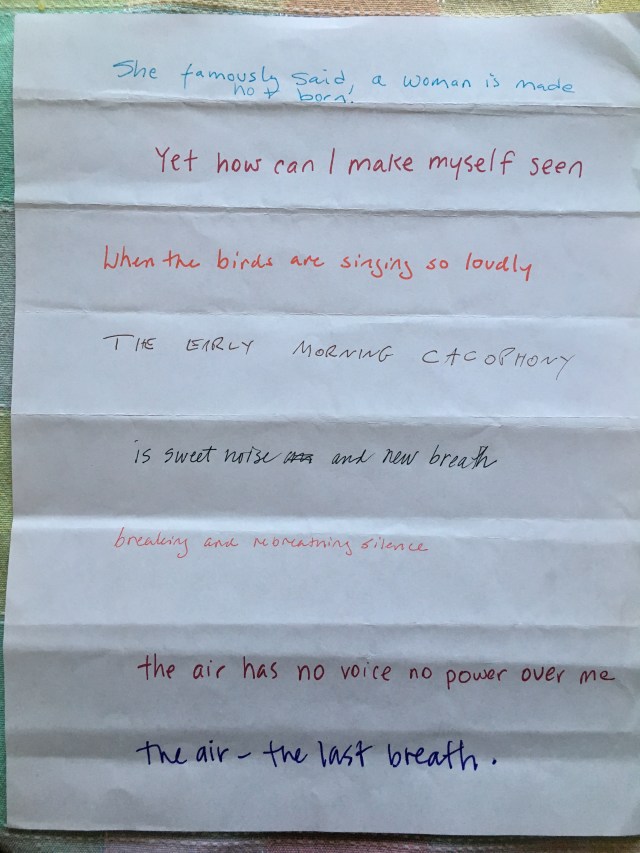 She famously said, a woman is made
not born!
Yet how can I make myself seen
When the birds are singing so loudly
THE EARLY MORNING CACOPHONY
is sweet noise and new breath
breaking and rebreathing silence
the air has no voice no power over me
the air - the last breath.